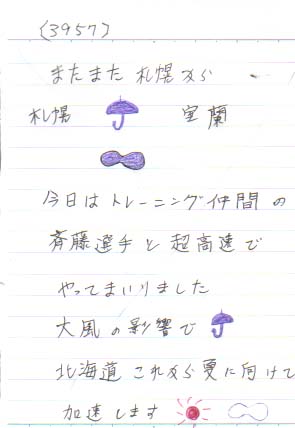 (3957)
またまた 札幌から
札幌 室蘭
今日は トレーニング仲間の
斉藤選手と 超高速で
やってまいりました
大風の影響で
北海道 これから夏に向けて
加速します